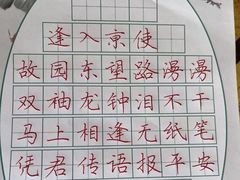 逢入京使
故园东望路漫漫
双袖龙钟泪不干
马上相逢无纸笔
凭君传语报平安